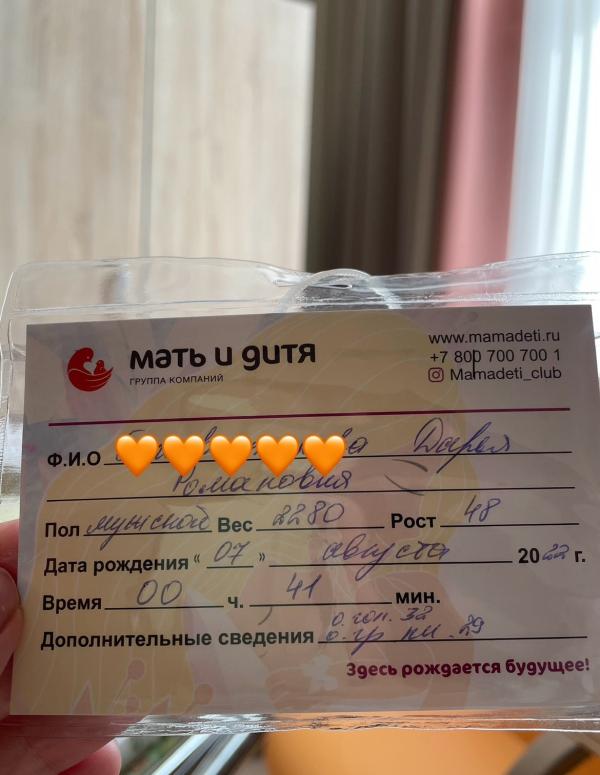 мать и дитя
ГРУППА КОМПАНИЙ
www.mamadeti.ru
+7 800 700 700 1
Mamadeti_club
Ф.И.О Дарья
Романовна
Пол мужской Вес 2280 Рост 48
Дата рождения “ 07 ” августа 2022 г.
Время 00 ч. 41 мин.
о. гол. 32
Дополнительные сведения о. гр кл. 29
Здесь рождается будущее!